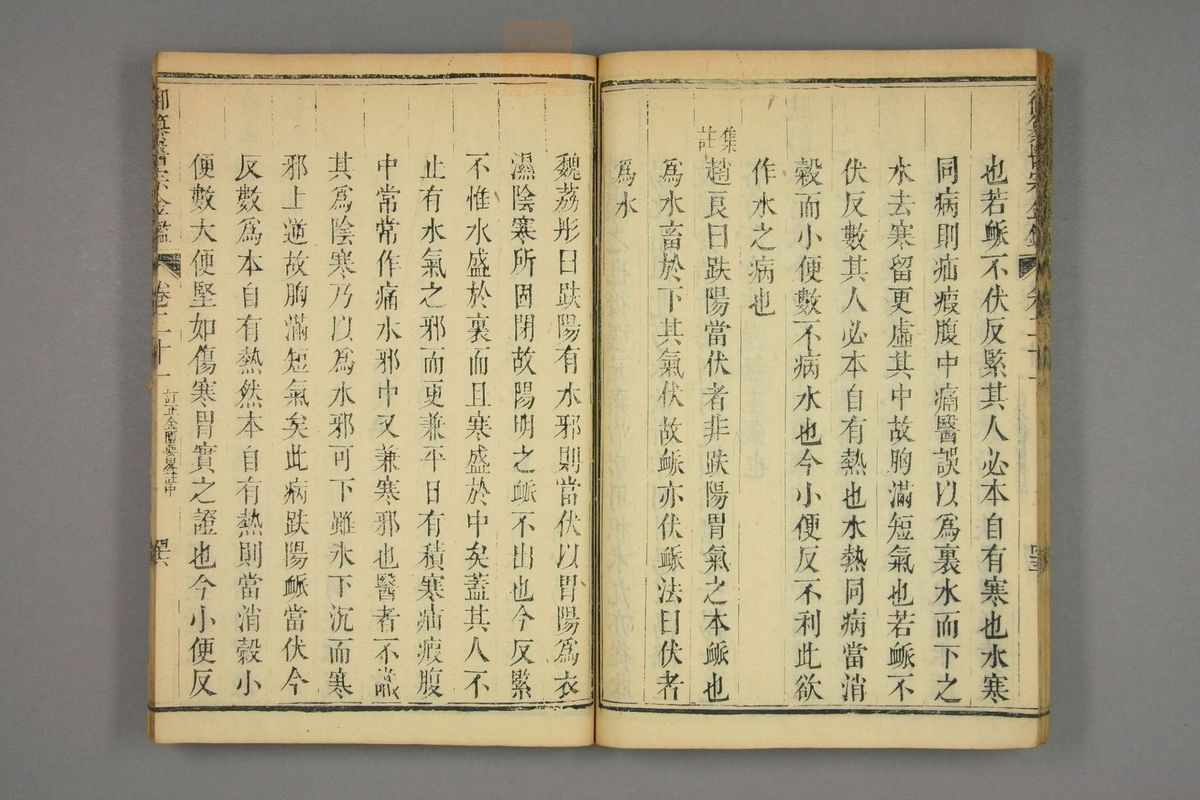 也若脈不伏反緊其人必本自有寒也水寒
同病則疝瘕腹中痛醫誤以爲裏水而下之
水去寒留更虛其中故胸滿短氣也若脈不
伏反數其人必本自有熱也水熱同病當消
穀而小便數不病水也今小便反不利此欲
作水之病也
集註
趙良曰趺陽當伏者非趺陽胃氣之本脈也
爲水畜於下其氣伏故脈亦伏脈法曰伏者
爲水
魏荔彤曰趺陽有水邪則當伏以胃陽爲衣
濕陰寒所固閉故陽明之脈不出也今反緊
不惟水盛於裏而且寒盛於中矣蓋其人不
止有水氣之邪而更兼平日有積寒疝瘕腹
中常常作痛水邪中又兼寒邪也醫者不識
其爲陰寒乃以爲水邪可下雖水下沉而寒
邪上逆故胸滿短氣矣此病趺陽脈當伏今
反數爲本自有熱然本自有熱則當消穀小
便數大便堅如傷寒胃實之證也今小便反
御纂醫宗金鑑 卷二十一 訂正金匱要畧註中